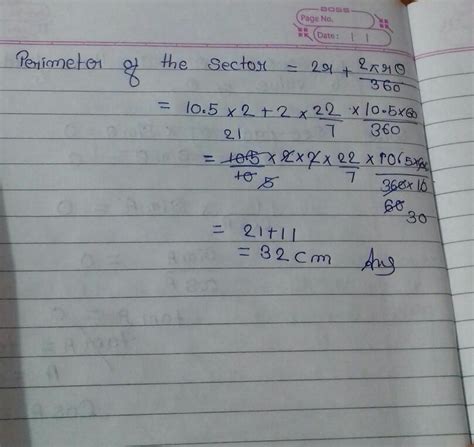 BOSS
Page No.
Date: | |
Perimeter of the Sector = 2r + 2πrθ/360
= 10.5 × 2 + 2 × 22/7 × 10.5×60/360
21
= 105/10 × 2 × 2 × 22/7 × 1065×60/360×10
5
60
30
= 21+11
= 32 cm Ans